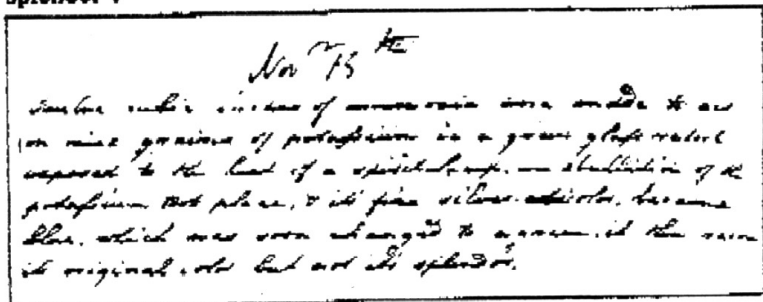 Nov r 15 th
Twelve cubic inches of ammonia were made to act
on nine grains of potassium in a green glass retort
exposed to the heat of a spirit lamp, an ebullition of the
potassium took place, & its fine silver color, became
blue, which was soon changed to a green, it then
its original color but not its splendor.